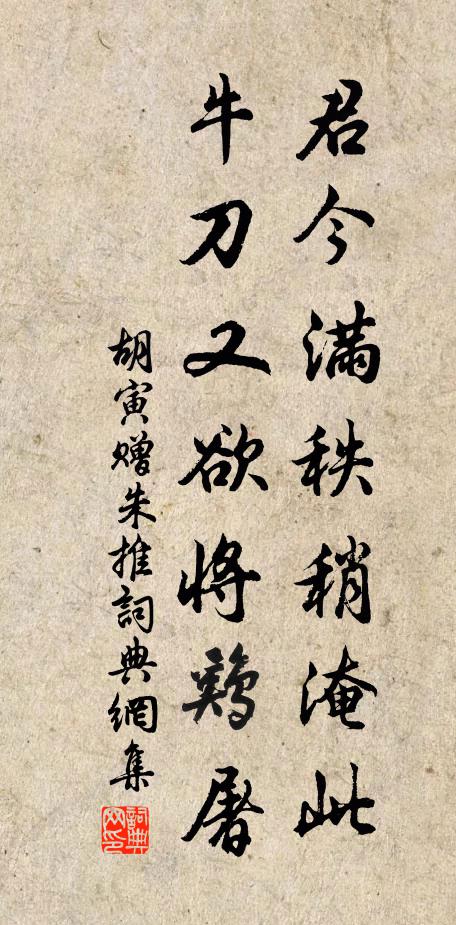 君今滿秩稍淹此
牛刀又欲將鷄屠
胡寅贈朱推詞典網集
詞典
网印